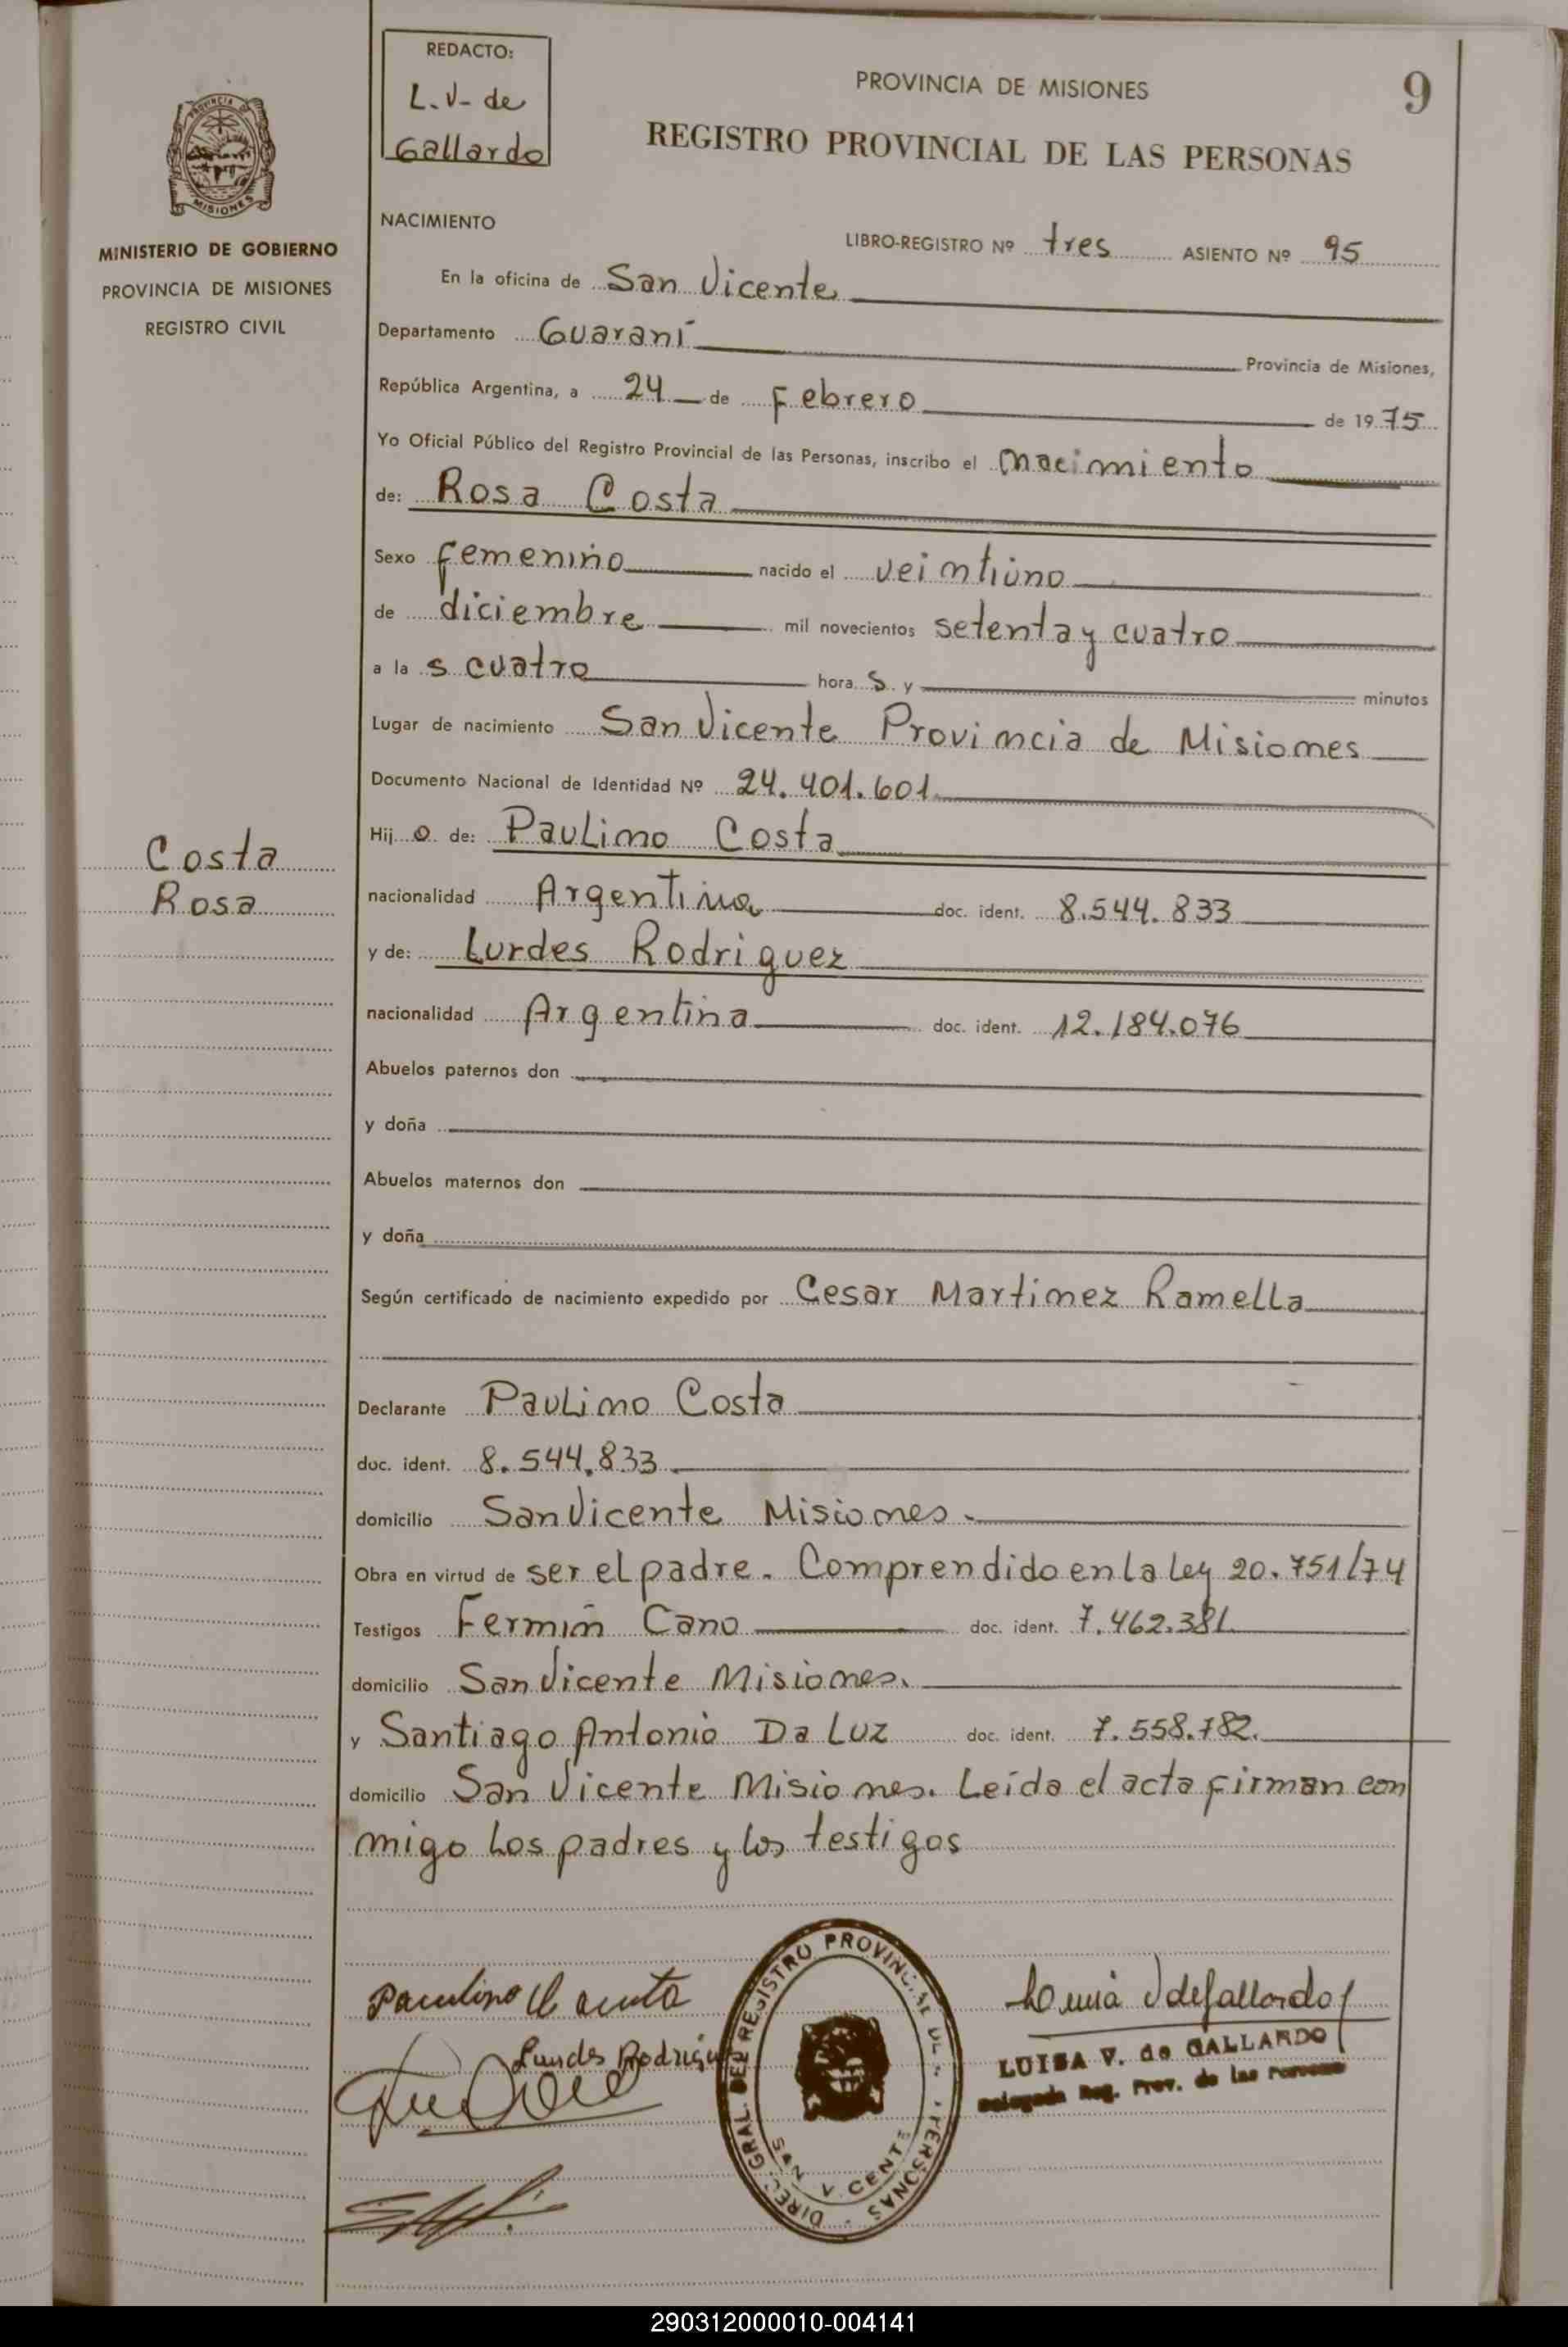 REDACTO:
L.V- de
Gallardo
PROVINCIA DE MISIONES
9
REGISTRO PROVINCIAL DE LAS PERSONAS
PROVINCIA DE
MISIONES
MINISTERIO DE GOBIERNO
PROVINCIA DE MISIONES
REGISTRO CIVIL
NACIMIENTO
LIBRO-REGISTRO Nº tres ASIENTO Nº 95
En la oficina de San Vicente
Departamento Guaraní Provincia de Misiones,
República Argentina, a 24 de Febrero de 1975
Yo Oficial Público del Registro Provincial de las Personas, inscribo el nacimiento
de: Rosa Costa
Sexo femenino nacido el veintiuno
de diciembre mil novecientos setenta y cuatro
a las cuatro horas y minutos
Lugar de nacimiento San Vicente Provincia de Misiones
Documento Nacional de Identidad Nº 24.401.601
Costa
Rosa
Hijo de: Paulino Costa
nacionalidad Argentina doc. ident. 8.544.833
y de: Lurdes Rodriguez
nacionalidad Argentina doc. ident. 12.184.076
Abuelos paternos don
y doña
Abuelos maternos don
y doña
Según certificado de nacimiento expedido por Cesar Martinez Ramella
Declarante Paulino Costa
doc. ident. 8.544.833
domicilio San Vicente Misiones.
Obra en virtud de ser el padre. Comprendido en la Ley 20.751/74
Testigos Fermín Cano doc. ident. 7.462.381
domicilio San Vicente Misiones.
y Santiago Antonio Da Luz doc. ident. 7.558.782.
domicilio San Vicente Misiones. Leída el acta firman con
migo los padres y los testigos
Lurdes Rodrigu
DIREC. GRAL. DEL REGISTRO PROVINC. DE PERSONAS
SAN VICENTE
LUISA V. de GALLARDO
Delegada Reg. Prov. de las Personas
290312000010-004141